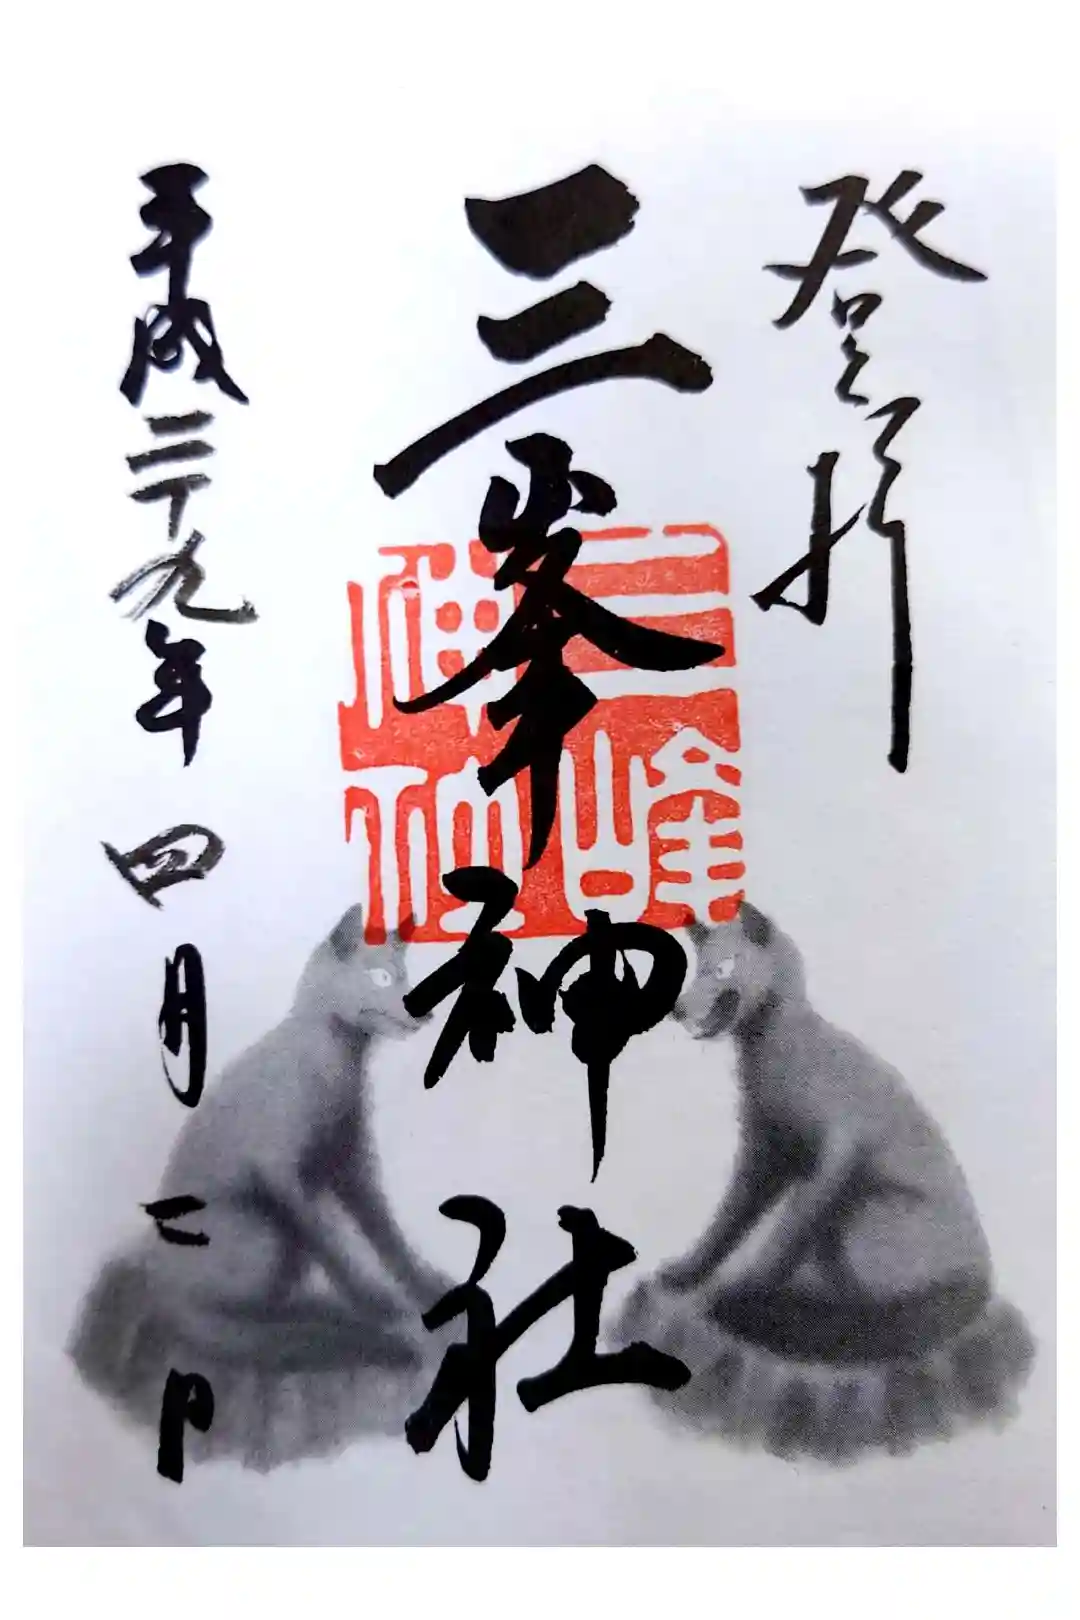 登拝
三峯神社
三峰
神社
平成二十九年四月二日